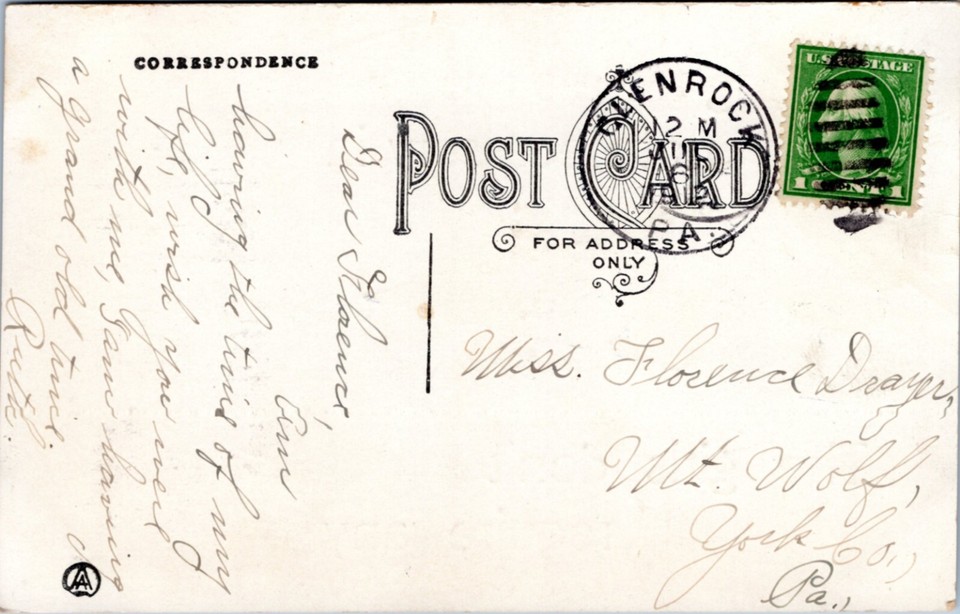 CORRESPONDENCE
Dear Florence,
Em
having the time of my
life, wish you were
with me, I am having
a grand old time.
Ruth.
POST CARD
FOR ADDRESS
ONLY
GLENROCK
12 M
6
PA.
U.S. POSTAGE
1 CENT 1
Miss. Florence Drayer,
Mt. Wolf,
York Co.,
Pa.,